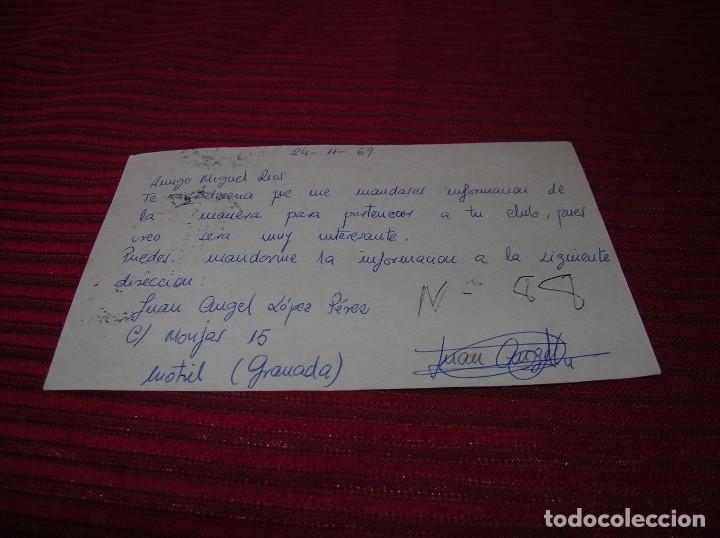 24-11-69
Amigo Miguel Rios.
Te agradeceria que me mandases informacion de
la manera para pertenecer a tu club, pues
creo sera muy interesante.
Puedes mandarme la informacion a la siguiente
direccion:
Juan Angel López Pérez
C/. Monjas 15
Motril (Granada)
N-º 98
Juan Angel
todocoleccion.net